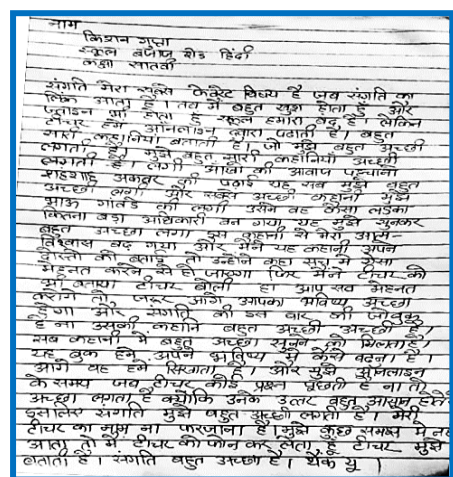 नाम
किशन गुप्ता
स्कूल बजाज रोड हिंदी
कक्षा सातवी
संगति मेरा सबसे फेवरेट विषय है जब संगति का
लिंक आता है। तब में बहुत खुश होता हूँ और
होता है स्कूल हमारा बंद है। लेकिन
टीचर हमे ऑनलाइन द्वारा पढाती है। बहुत
सारी कहानियाँ बताती है। जो मुझे बहुत अच्छी
लगती है। मुझे बहुत सारी कहानियाँ अच्छी
लगती है। आवाज पहचानो
अकबर की पढाई यह सब मुझे बहुत
अच्छी लगी और सबसे अच्छी कहानी मुझे
भाऊ की लगी उसमे वह कैसा लडका
कितना बडा अधिकारी बन गया यह मुझे सुनकर
बहुत अच्छा लगा इस कहानी से मेरा आत्म
विश्वास बढ गया और मैने यह कहानी अपने
दोस्तो को बताइ तो उन्होने कहा ऐसा
मेहनत करने से हो जाएगा फिर मैने टीचर को
भी बताया टीचर बोली हा आप सब मेहनत
करोगे तो जरूर आगे आपका भविष्य अच्छा
होगा और संगति की इस बार की जो बुक
है ना उसकी कहानि बहुत अच्छी अच्छी है।
सब कहानी में बहुत अच्छा सुनने को मिलता है।
यह बुक हमे अपने भविष्य में कैसे बढना है।
आगे यह हमे सिखाता है। और मुझे ऑनलाइन
के समय जब टीचर कोई प्रश्न पूछती है ना तो
अच्छा लगता है क्योकि उनके उत्तर बहुत आसान होते है
इसलिए संगति मुझे बहुत अच्छी लगती है। मेरी
टीचर का नाम ना फरजाना है। मुझे कुछ समझ में नहीं
आता तो में टीचर को फोन कर लेता हूँ टीचर मुझे
बताती है। संगति बहुत अच्छी है। थैंक यू।